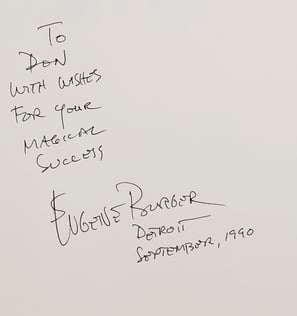 To
DON
WITH WISHES
FOR YOUR
MAGICAL
SUCCESS
EUGENE BURGER
DETROIT
SEPTEMBER, 1990